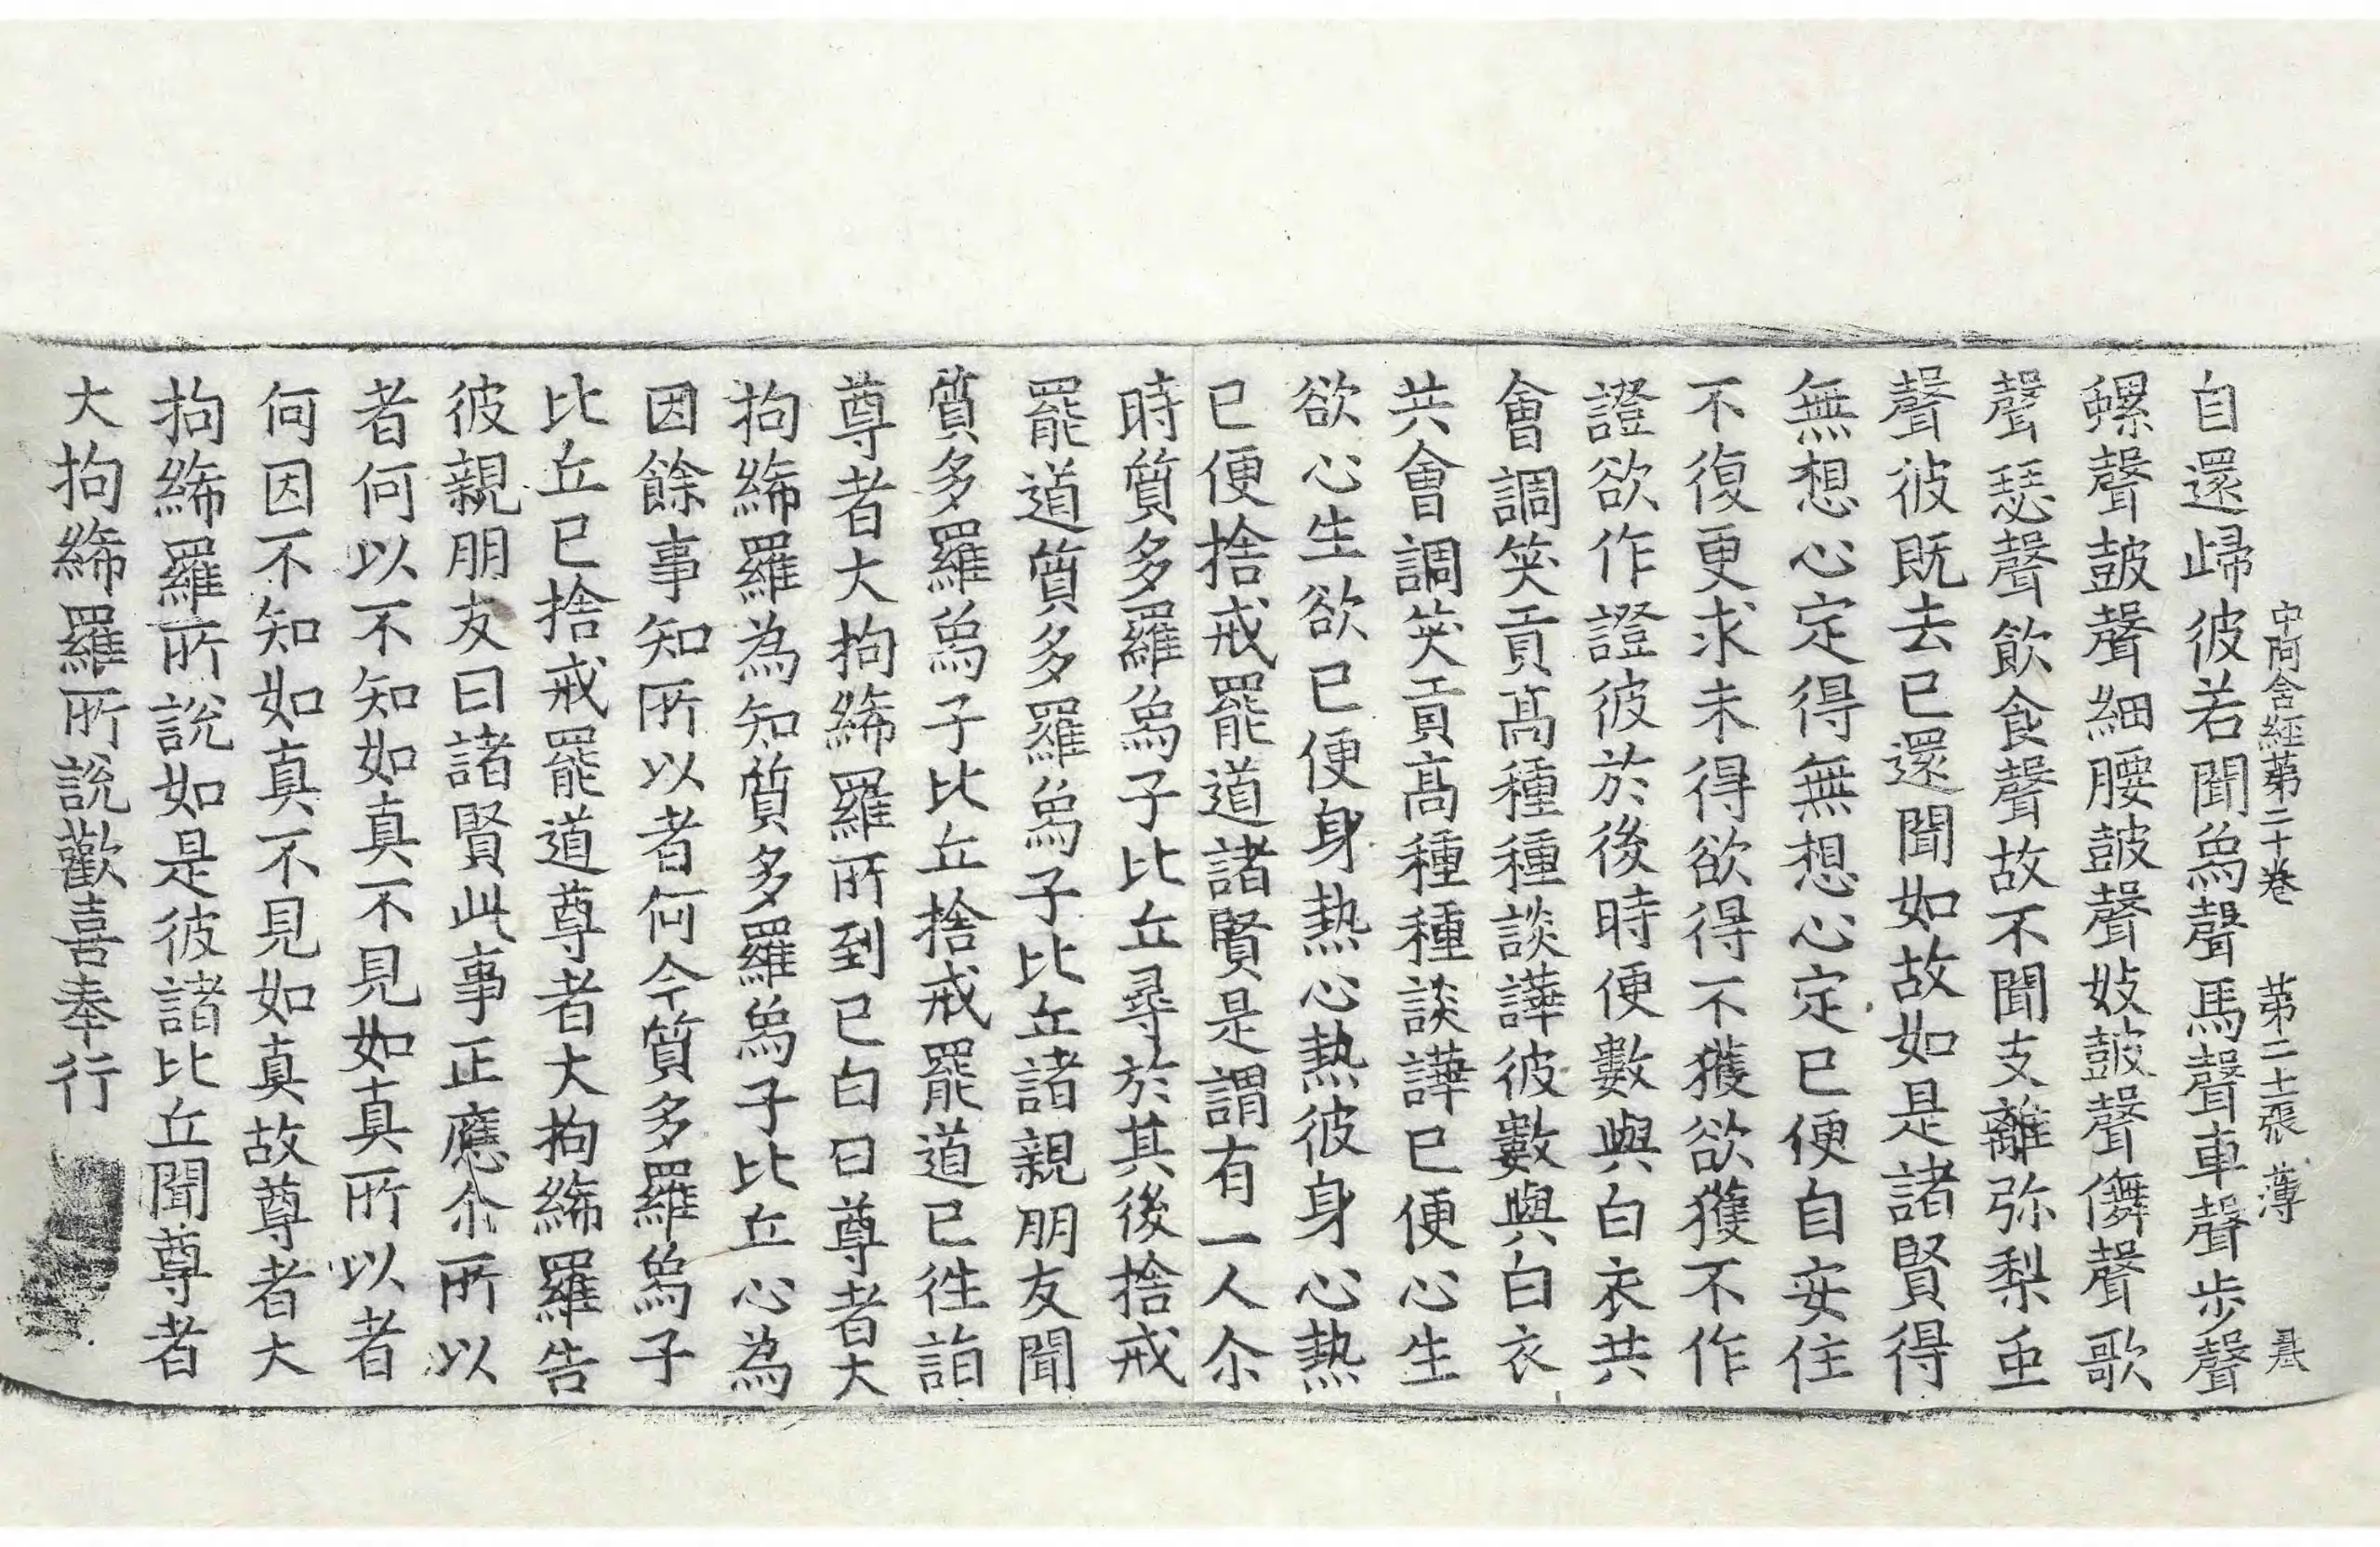 中阿含經第二十卷 第二十二張 薄
自還歸彼若聞象聲馬聲車聲步聲
螺聲鼓聲細腰鼓聲妓鼓聲儛聲歌
聲瑟聲飮食聲故不聞支離弥梨䖝
聲彼既去已還聞如故如是諸賢得
無想心定得無想心定已便自安住
不復更求未得欲得不獲欲獲不作
證欲作證彼於後時便數與白衣共
會調笑貢高種種談譁彼數與白衣
共會調笑貢高種種談譁已便心生
欲心生欲已便身熱心熱彼身心熱
已便捨戒罷道諸賢是謂有一人尒
時質多羅象子比丘尋於其後捨戒
罷道質多羅象子比丘諸親朋友聞
質多羅象子比丘捨戒罷道已往詣
尊者大拘絺羅所到已白曰尊者大
拘絺羅為知質多羅象子比丘心為
因餘事知所以者何今質多羅象子
比丘已捨戒罷道尊者大拘絺羅告
彼親朋友曰諸賢此事正應尒所以
者何以不知如真不見如真所以者
何因不知如真不見如真故尊者大
拘絺羅所說如是彼諸比丘聞尊者
大拘絺羅所說歡喜奉行